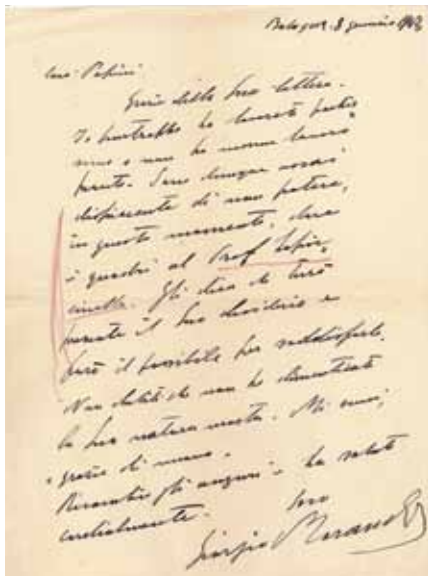 Bologna 8 gennaio
Caro Papini
Grazie della Sua lettera.
Io purtroppo ho lavorato pochis
simo e non ho nessun lavoro
pronto. Sono dunque assai
dispiacente di non potere,
in questo momento, dare
i quadri al Prof.
Gli dica che terrò
presente il Suo desiderio e
farò il possibile per soddisfarlo.
Non dubiti che non ho dimenticato
la Sua natura morta. Mi scusi,
e grazie di nuovo.
Ricambio gli auguri e La saluto
cordialmente. Suo
Giorgio Morandi